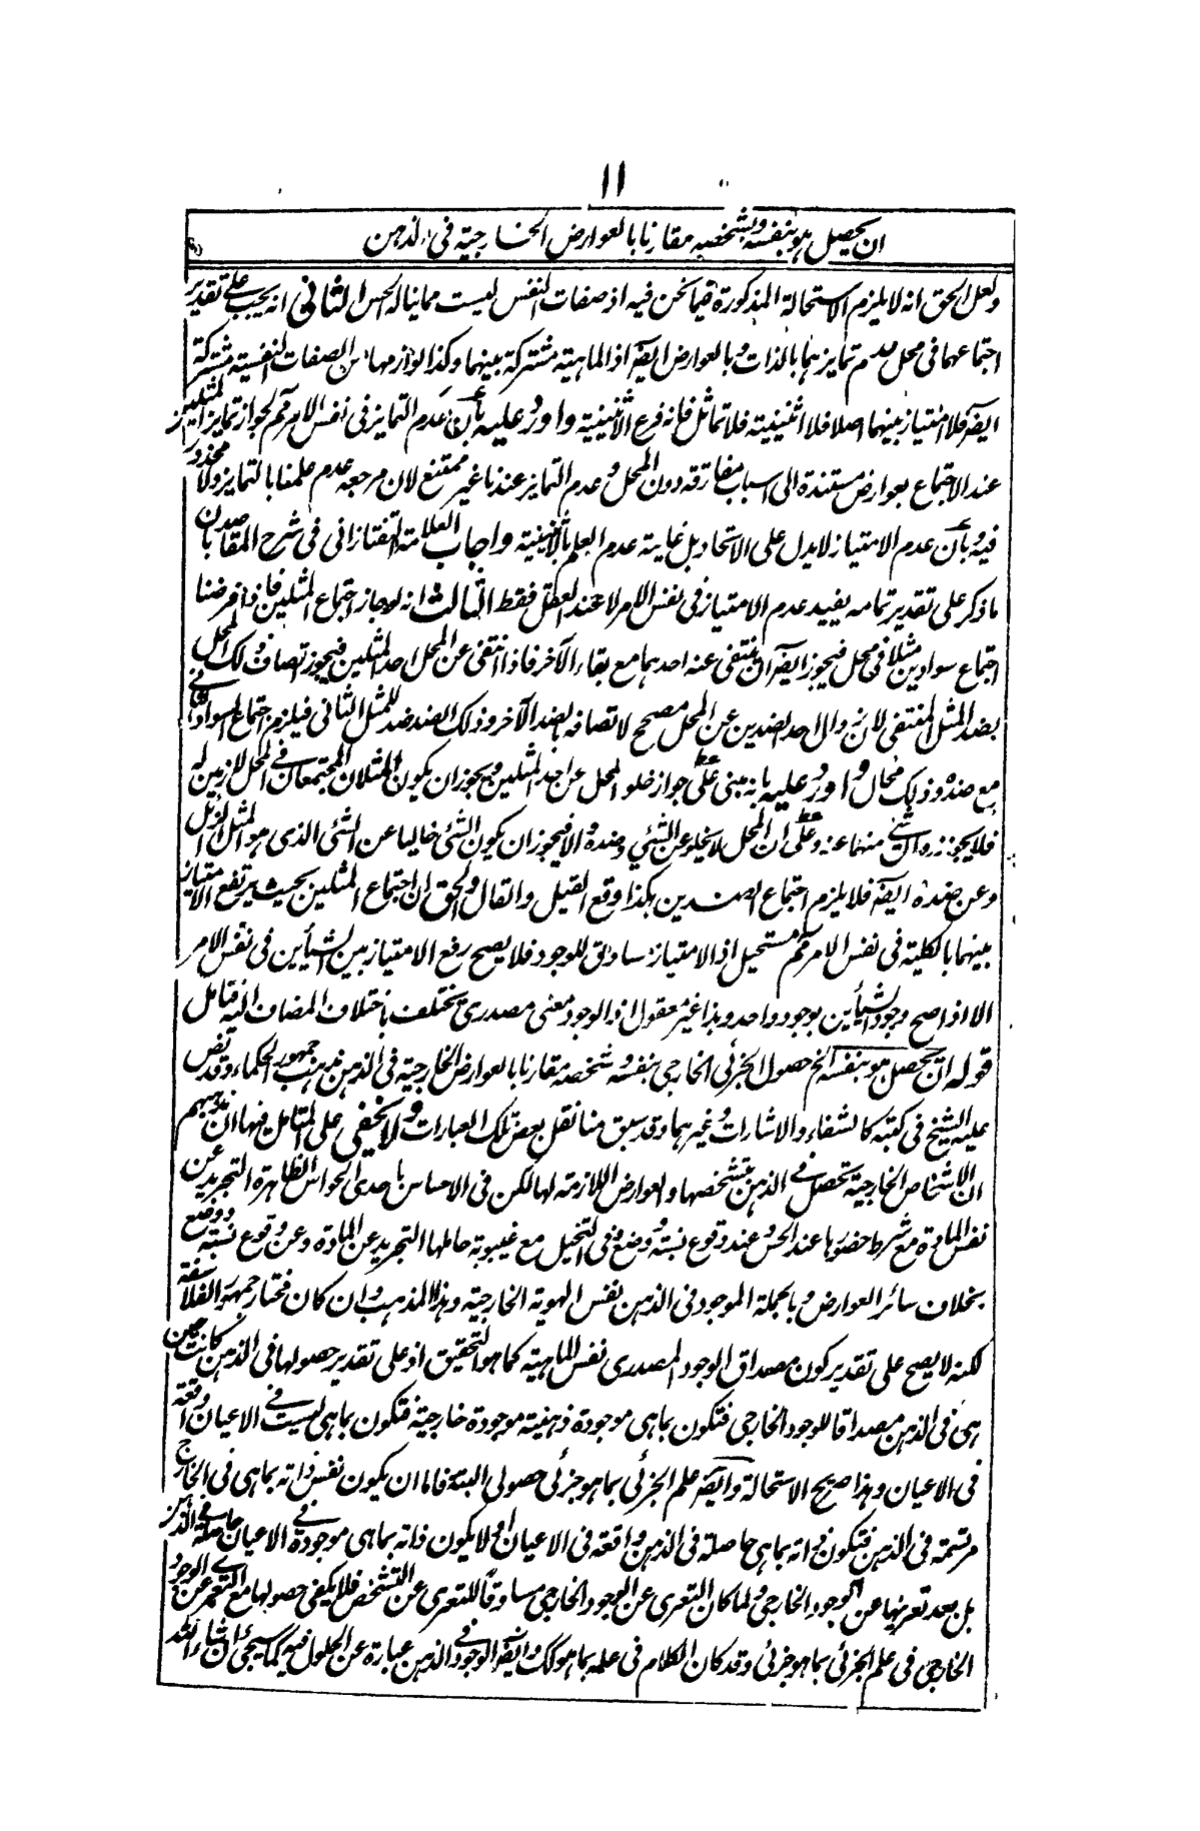 ١١
ان يحصل هو بنفسه وبشخصه مقارنا بالعوارض الخارجية في الذهن
ولعل الحق انه لا يلزم الاستحالة المذكورة فيما نحن فيه اذ صفات النفس ليست مما يناله الحس الثاني انه يجب على تقدير
اجتماعهما في محل عدم تمايزهما بالذات وبالعوارض ايضا اذ الماهية مشتركة بينهما وكذا لوازمها من الصفات النفسية مشتركة
ايضا فلا امتياز بينهما اصلا فلا اثنينية فلا تماثل فانه فرع الاثنينية واورد عليه بأن عدم التمايز في نفس الامر مم لجواز تمايز المثلين
عند الاجتماع بعوارض مستندة الى اسباب مفارقة دون المحل وعدم التمايز عندنا غير ممتنع لان مرجعه عدم علمنا بالتمايز ولا محذور
فيه وبأن عدم الامتياز لا يدل على الاتحاد بل غايته عدم العلم بالاثنينية واجاب العلامة التفتازاني في شرح المقاصد بان
ما ذكر على تقدير تمامه يفيد عدم الامتياز في نفس الامر لا عند العقل فقط الثالث انه لو جاز اجتماع المثلين فاذا فرضنا
اجتماع سوادين مثلا في محل فيجوز ايضا ان ينتفي عنه احدهما مع بقاء الآخر فاذا انتفى عن المحل احد المثلين فيجوز اتصاف ذلك المحل
بضد المثل المنتفي لان زوال احد الضدين عن المحل مصحح لاتصافه بالضد الآخر وذلك الضد ضد للمثل الثاني فيلزم اجتماع السواد الثاني
مع ضده وذلك محال واورد عليه بانه مبني على جواز خلو المحل عن احد المثلين ويجوز ان يكون المثلان المجتمعان في المحل لازمين له
فلا يجوز زوال شئ منهما عنه وعلى ان المحل لا يخلو عن الشئ وضده والا فيجوز ان يكون الشئ خاليا عن الشئ الذي هو المثل الزائل
وعن ضده ايضا فلا يلزم اجتماع الضدين هكذا وقع القيل والقال والحق ان اجتماع المثلين بحيث يرتفع الامتياز
بينهما بالكلية في نفس الامر مم مستحيل اذ الامتياز مساوق للوجود فلا يصح رفع الامتياز بين الشيأين في نفس الامر
الا اذا صح وجود الشيأين بوجود واحد وهذا غير معقول اذ الوجود معنى مصدري يختلف باختلاف المضاف اليه فتامل
قوله ان يحصل هو بنفسه الخ حصول الجزئي الخارجي بنفسه وشخصه مقارنا بالعوارض الخارجية في الذهن مذهب جمهور الحكماء وقد نص
عليه الشيخ في كتبه كالشفاء والاشارات وغيرهما وقد سبق منا نقل بعض تلك العبارات ولا يخفى على المتامل فيها ان مذهبهم
ان الاشخاص الخارجية تحصل في الذهن بتشخصها والعوارض اللازمة لها لكن في الاحساس باحدى الحواس الظاهرة التجريد عن
نفس المادة مع شرط حضورها عند الحس وعند وقوع نسبة ووضع وفي التخيل مع غيبوبة حاملها التجريد عن المادة وعن وقوع نسبة ووضع
بخلاف سائر العوارض وبالجملة الموجود في الذهن نفس الهوية الخارجية وهذا المذهب وان كان مختار جمهور الفلاسفة
لكنه لا يصح على تقدير كون مصداق الوجود المصدري نفس الماهية كما هو التحقيق اذ على تقدير حصولها في الذهن كانت من حيث
هي في الذهن مصداقا للوجود الخارجي فتكون بما هي موجودة ذهنية موجودة خارجية فتكون بما هي ليست في الاعيان واقعة
في الاعيان وهذا صريح الاستحالة وايضا علم الجزئي بما هو جزئي حصولي البتة فاما ان يكون نفس ذاته بما هي في الخارج
مرتسمة في الذهن فتكون ذاته بما هي حاصلة في الذهن واقعة في الاعيان او لا يكون ذاته بما هي موجودة في الاعيان حاصلة في الذهن
بل بعد تعريتها عن الوجود الخارجي ولما كان التعري عن الوجود الخارجي مساوقا للتعري عن التشخص فلا يكفي حصولها مع التعري عن الوجود
الخارجي في علم الجزئي بما هو جزئي وقد كان الكلام في علمه بما هو كك وايضا الوجود في الذهن عبارة عن الحلول فيه كما سيجئ ان شاء الله